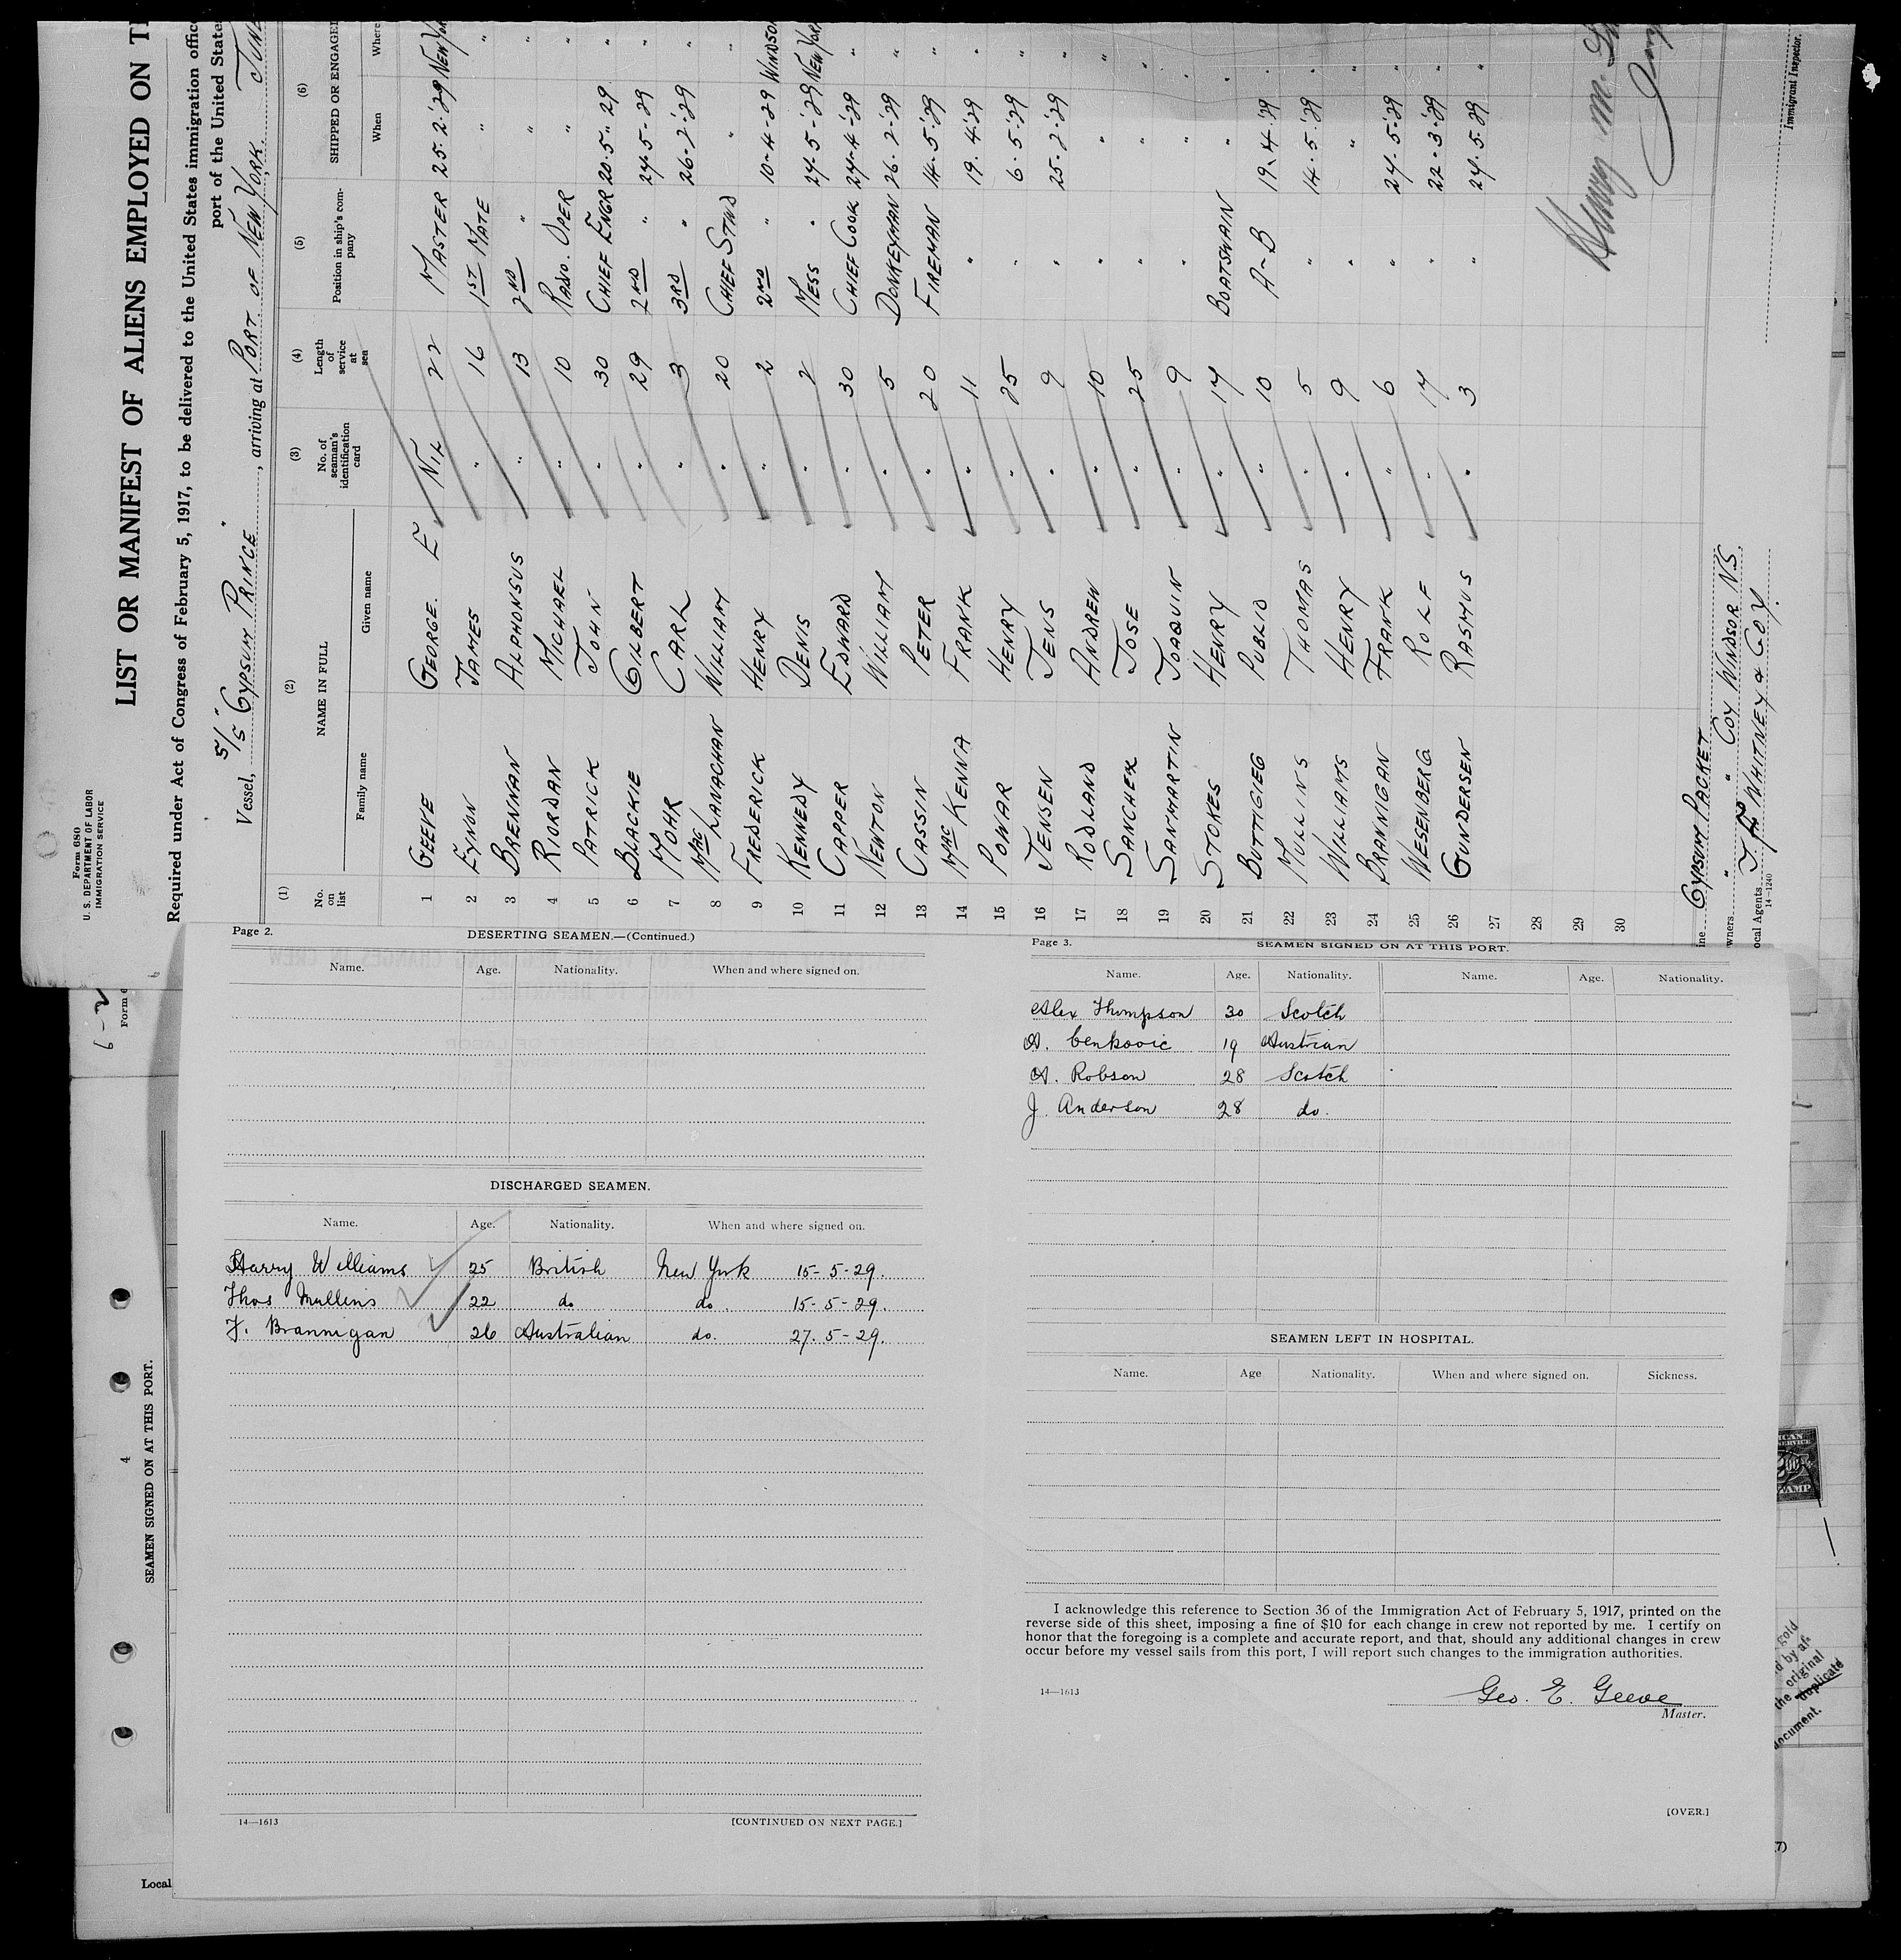 Form 680
U. S. DEPARTMENT OF LABOR
IMMIGRATION SERVICE
LIST OR MANIFEST OF ALIENS EMPLOYED ON
Required under Act of Congress of February 5, 1917, to be delivered to the United States immigration
port of the United
Vessel, S/S "GYPSUM PRINCE", arriving at PORT OF NEW YORK. JUNE
(1) (2) (3) (4) (5) (6)
No. on list NAME IN FULL No. of seaman's identification card Length of service at sea Position in ship's company SHIPPED OR ENGAGED
Family name Given name When Where
1 GEEVE GEORGE. E NIL 22 MASTER 25.2.'29 NEW YORK
2 EYNON JAMES " 16 1ST MATE " "
3 BRENNAN ALPHONSUS " 13 2ND " " "
4 RIORDAN MICHAEL " 10 RADO. OPER " "
5 PATRICK JOHN " 30 CHIEF ENGR 20.5.29 "
6 BLACKIE GILBERT " 29 2ND " 24-5-29 "
7 MOHR CARL " 3 3RD " 26-2-29 "
8 MACLANACHAN WILLIAM " 20 CHIEF STWD " "
9 FREDERICK HENRY " 2 2ND " 10-4-29 WINDSOR
10 KENNEDY DENIS " 2 MESS " 24-5-'29 NEW YORK
11 CAPPER EDWARD " 30 CHIEF COOK 24-4-'29 "
12 NEWTON WILLIAM " 5 DONKEYMAN 26.2-'29 "
13 CASSIN PETER " 20 FIREMAN 14-5-'29 "
14 MACKENNA FRANK " 11 " 19.4-'29 "
15 POWAR HENRY " 25 " 6-5-'29 "
16 JENSEN JENS " 9 " 25-2-'29 "
17 RODLAND ANDREW " 10 " " "
18 SANCHEZ JOSE " 25 " " "
19 SANMARTIN JOAQUIN " 9 " " "
20 STOKES HENRY " 17 BOATSWAIN " "
21 BUTTIGIEG PUBLIO " 10 A-B 19-4-'29 "
22 MULLINS THOMAS " 5 " 14-5-'29 "
23 WILLIAMS HENRY " 9 " " "
24 BRANNIGAN FRANK " 6 " 24-5-'29 "
25 WESENBERG ROLF " 17 " 22-3-'29 "
26 GUNDERSEN RASMUS " 3 " 24-5-'29 "
27
28
29
30
ine GYPSUM PACKET
wners " " COY WINDSOR NS.
ocal Agents J. F. WHITNEY & COY.
14-1240
Immigrant Inspector.
Page 2.
DESERTING SEAMEN.—(Continued.)
Name. Age. Nationality. When and where signed on.
DISCHARGED SEAMEN.
Name. Age. Nationality. When and where signed on.
Harry Williams 25 British New York 15-5-29.
Thos Mullins 22 do do. 15-5-29.
F. Brannigan 26 Australian do. 27.5-29.
14—1613
[CONTINUED ON NEXT PAGE.]
Page 3.
SEAMEN SIGNED ON AT THIS PORT.
Name. Age. Nationality. Name. Age. Nationality.
Alex Thompson 30 Scotch
A. Cenkovic 19 Austrian
A. Robson 28 Scotch
J. Anderson 28 do.
SEAMEN LEFT IN HOSPITAL.
Name. Age Nationality. When and where signed on. Sickness.
I acknowledge this reference to Section 36 of the Immigration Act of February 5, 1917, printed on the
reverse side of this sheet, imposing a fine of $10 for each change in crew not reported by me. I certify on
honor that the foregoing is a complete and accurate report, and that, should any additional changes in crew
occur before my vessel sails from this port, I will report such changes to the immigration authorities.
14—1613
Geo. E. Geeve
Master.
[OVER.]
4
SEAMEN SIGNED ON AT THIS PORT.
Local
Form
gold
d by af-
the original
duplicate
document.